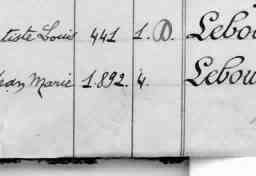 tiste Louis 441 1. D. Lebou
ean Marie 1.892. 4. Lebou